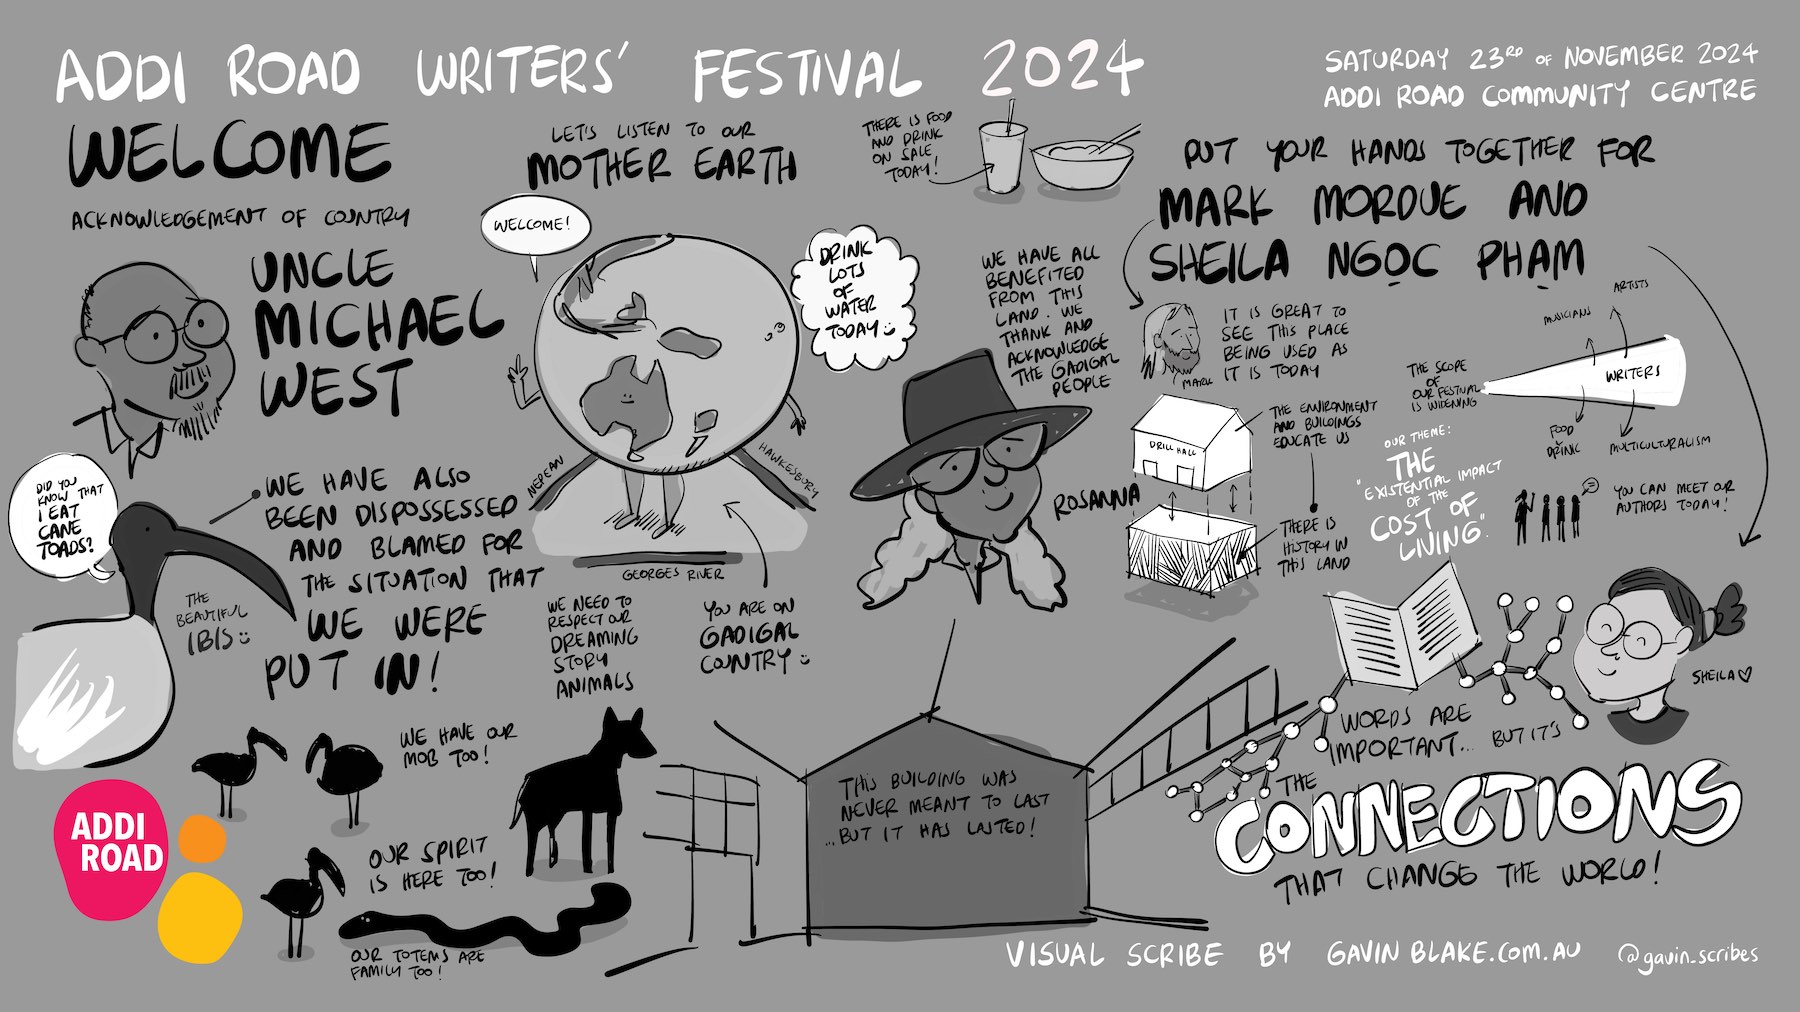 ADDI ROAD WRITERS' FESTIVAL 2024
SATURDAY 23RD OF NOVEMBER 2024
ADDI ROAD COMMUNITY CENTRE
WELCOME
ACKNOWLEDGEMENT OF COUNTRY
UNCLE
MICHAEL
WEST
LET'S LISTEN TO OUR
MOTHER EARTH
WELCOME!
DRINK
LOTS
OF
WATER
TODAY
THERE IS FOOD
AND DRINK
ON SALE
TODAY!
NEPEAN
HAWKESBORY
GEORGES RIVER
DID YOU
KNOW THAT
I EAT
CANE
TOADS?
THE
BEAUTIFUL
IBIS
WE HAVE ALSO
BEEN DISPOSSESSED
AND BLAMED FOR
THE SITUATION THAT
WE WERE
PUT IN!
WE NEED TO
RESPECT OUR
DREAMING
STORY
ANIMALS
YOU ARE ON
GADIGAL
COUNTRY
WE HAVE OUR
MOB TOO!
OUR SPIRIT
IS HERE TOO!
OUR TOTEMS ARE
FAMILY TOO!
ADDI
ROAD
WE HAVE ALL
BENEFITED
FROM THIS
LAND. WE
THANK AND
ACKNOWLEDGE
THE GADIGAL
PEOPLE
ROSANNA
THIS BUILDING WAS
NEVER MEANT TO LAST
...BUT IT HAS LASTED!
PUT YOUR HANDS TOGETHER FOR
MARK MORDUE AND
SHEILA NGỌC PHẠM
MARK
IT IS GREAT TO
SEE THIS PLACE
BEING USED AS
IT IS TODAY
DRILL HALL
THE ENVIRONMENT
AND BUILDINGS
EDUCATE US
THERE IS
HISTORY IN
THIS LAND
THE SCOPE
OF
OUR FESTIVAL
IS WIDENING
MUSICIANS
ARTISTS
WRITERS
FOOD
DRINK
MULTICULTURALISM
OUR THEME:
THE
"EXISTENTIAL IMPACT
OF THE
COST OF
LIVING".
YOU CAN MEET OUR
AUTHORS TODAY!
SHEILA
WORDS ARE
IMPORTANT... BUT IT'S
THE
CONNECTIONS
THAT CHANGE THE WORLD!
VISUAL SCRIBE BY GAVINBLAKE.COM.AU @gavin_scribes